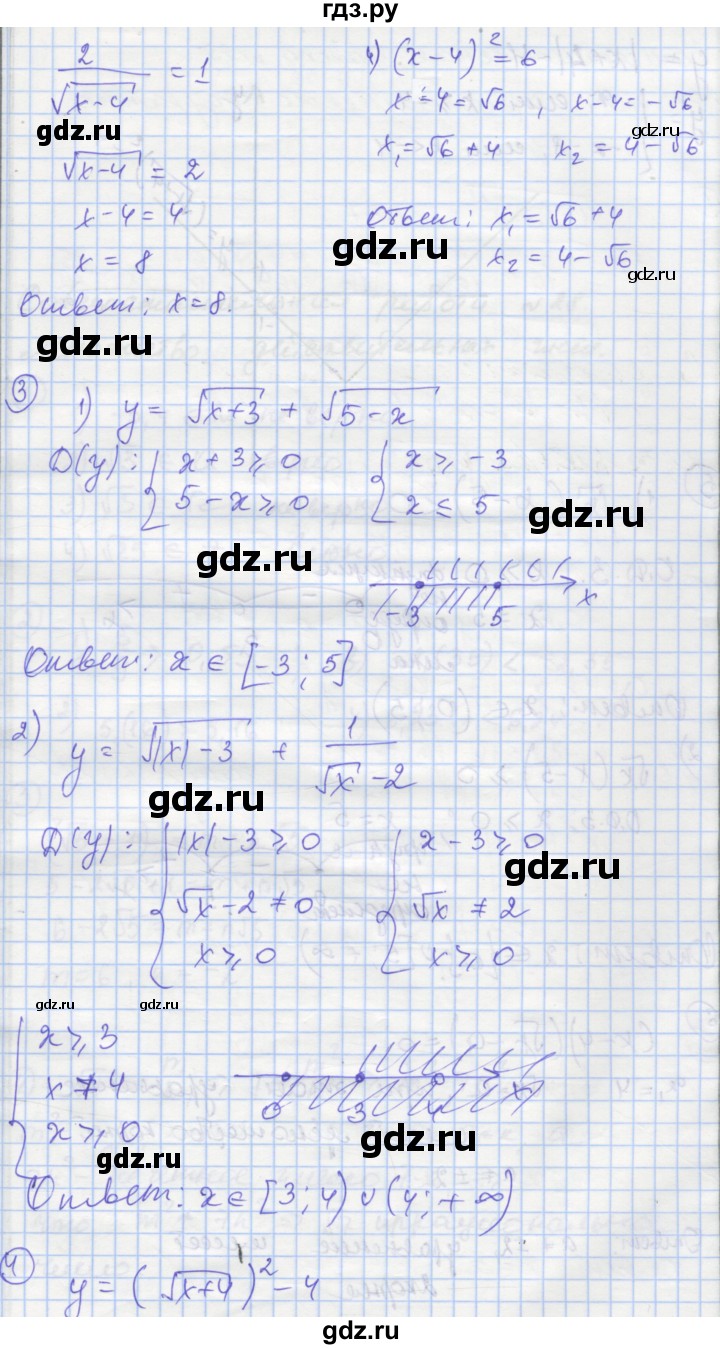 гдз.ру
2/√(x-4) = 1
gdz.ru
√(x-4) = 2
x-4=4
x = 8
Ответ: x=8.
gdz.ru
4) (x-4)² = 6
x-4=√6, x-4=-√6
gdz.ru
x₁=√6+4 x₂=4-√6
Ответ: x₁=√6+4
gdz.ru
x₂=4-√6
gdz.ru
③ 1) y = √(x+3) + √(5-x)
D(y): { x+3⩾0 { x⩾-3
5-x⩾0 x⩽5
gdz.ru
gdz.ru
-3 5 x
Ответ: x∈[-3;5]
2) y = √(|x|-3) + 1/(√x-2)
gdz.ru
D(y): { |x|-3⩾0 { x-3⩾0
gdz.ru
√x-2≠0 √x≠2
x⩾0 x⩾0
gdz.ru
gdz.ru
{ x⩾3
x≠4
x⩾0
0 3 4 x
gdz.ru
gdz.ru
Ответ: x∈[3;4)∪(4;+∞)
④ y=(√(x+4))²-4
gdz.ru
gdz.ru